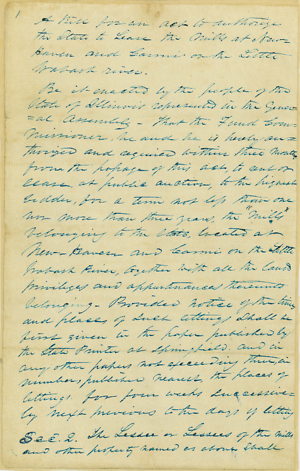 A Bill for an act to authorize
the State to Lease the Mills at New
Haven and Carmi on the Little
Wabash river.
Be it enacted by the people of the
State of Illinois represented in the Gener
al Assembly - That the Fund Com
missioner be and he is hereby au
thorized and required within three months
from the passage of this act, to
lease, at public auction, to the highest
bidder, for a term not less than one
nor more than three years, the Mills
belonging to the State, located at
New Haven and Carmi on the Little
Wabash River, together with all the land
privileges and appurtenances thereunto
belonging - Provided notice of the time
and places of such letting shall be
first given in the paper published by
the State Printer at Springfield, and in
any other papers not exceeding three in
number, published nearest the places of
lettings for four weeks successive-
ly next previous to the days of letting
SEC. 2. The Lessee or Lessees of the Mills
and other property named as above, shall